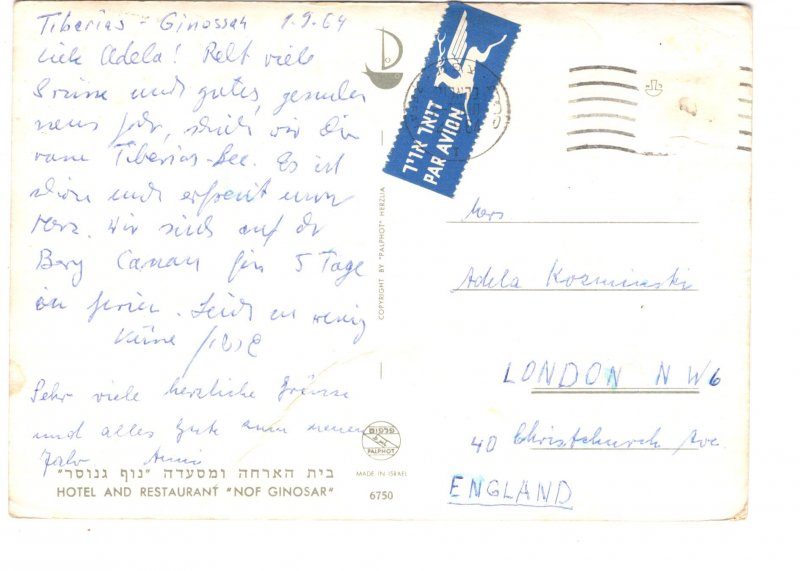 Tiberias - Ginossar 1.9.64
Adela! viele
Grüsse und gutes, gesundes
neues Jahr,
Tiberias-See. Es ist
schön und erfreut
Herz. Wir sind auf dr
Berg Canaan für 5 Tage
in Ferien. wenig
Sehr viele herzliche Grüsse
und alles Gute zum neuen
Jahr
בית הארחה ומסעדה "נוף גנוסר"
HOTEL AND RESTAURANT "NOF GINOSAR"
COPYRIGHT BY "PALPHOT" HERZLIA
פלפוט
PALPHOT
MADE IN ISRAEL
6750
דואר אויר
PAR AVION
Mrs
Adela Kozminski
LONDON NW6
40 Christchurch Ave.
ENGLAND